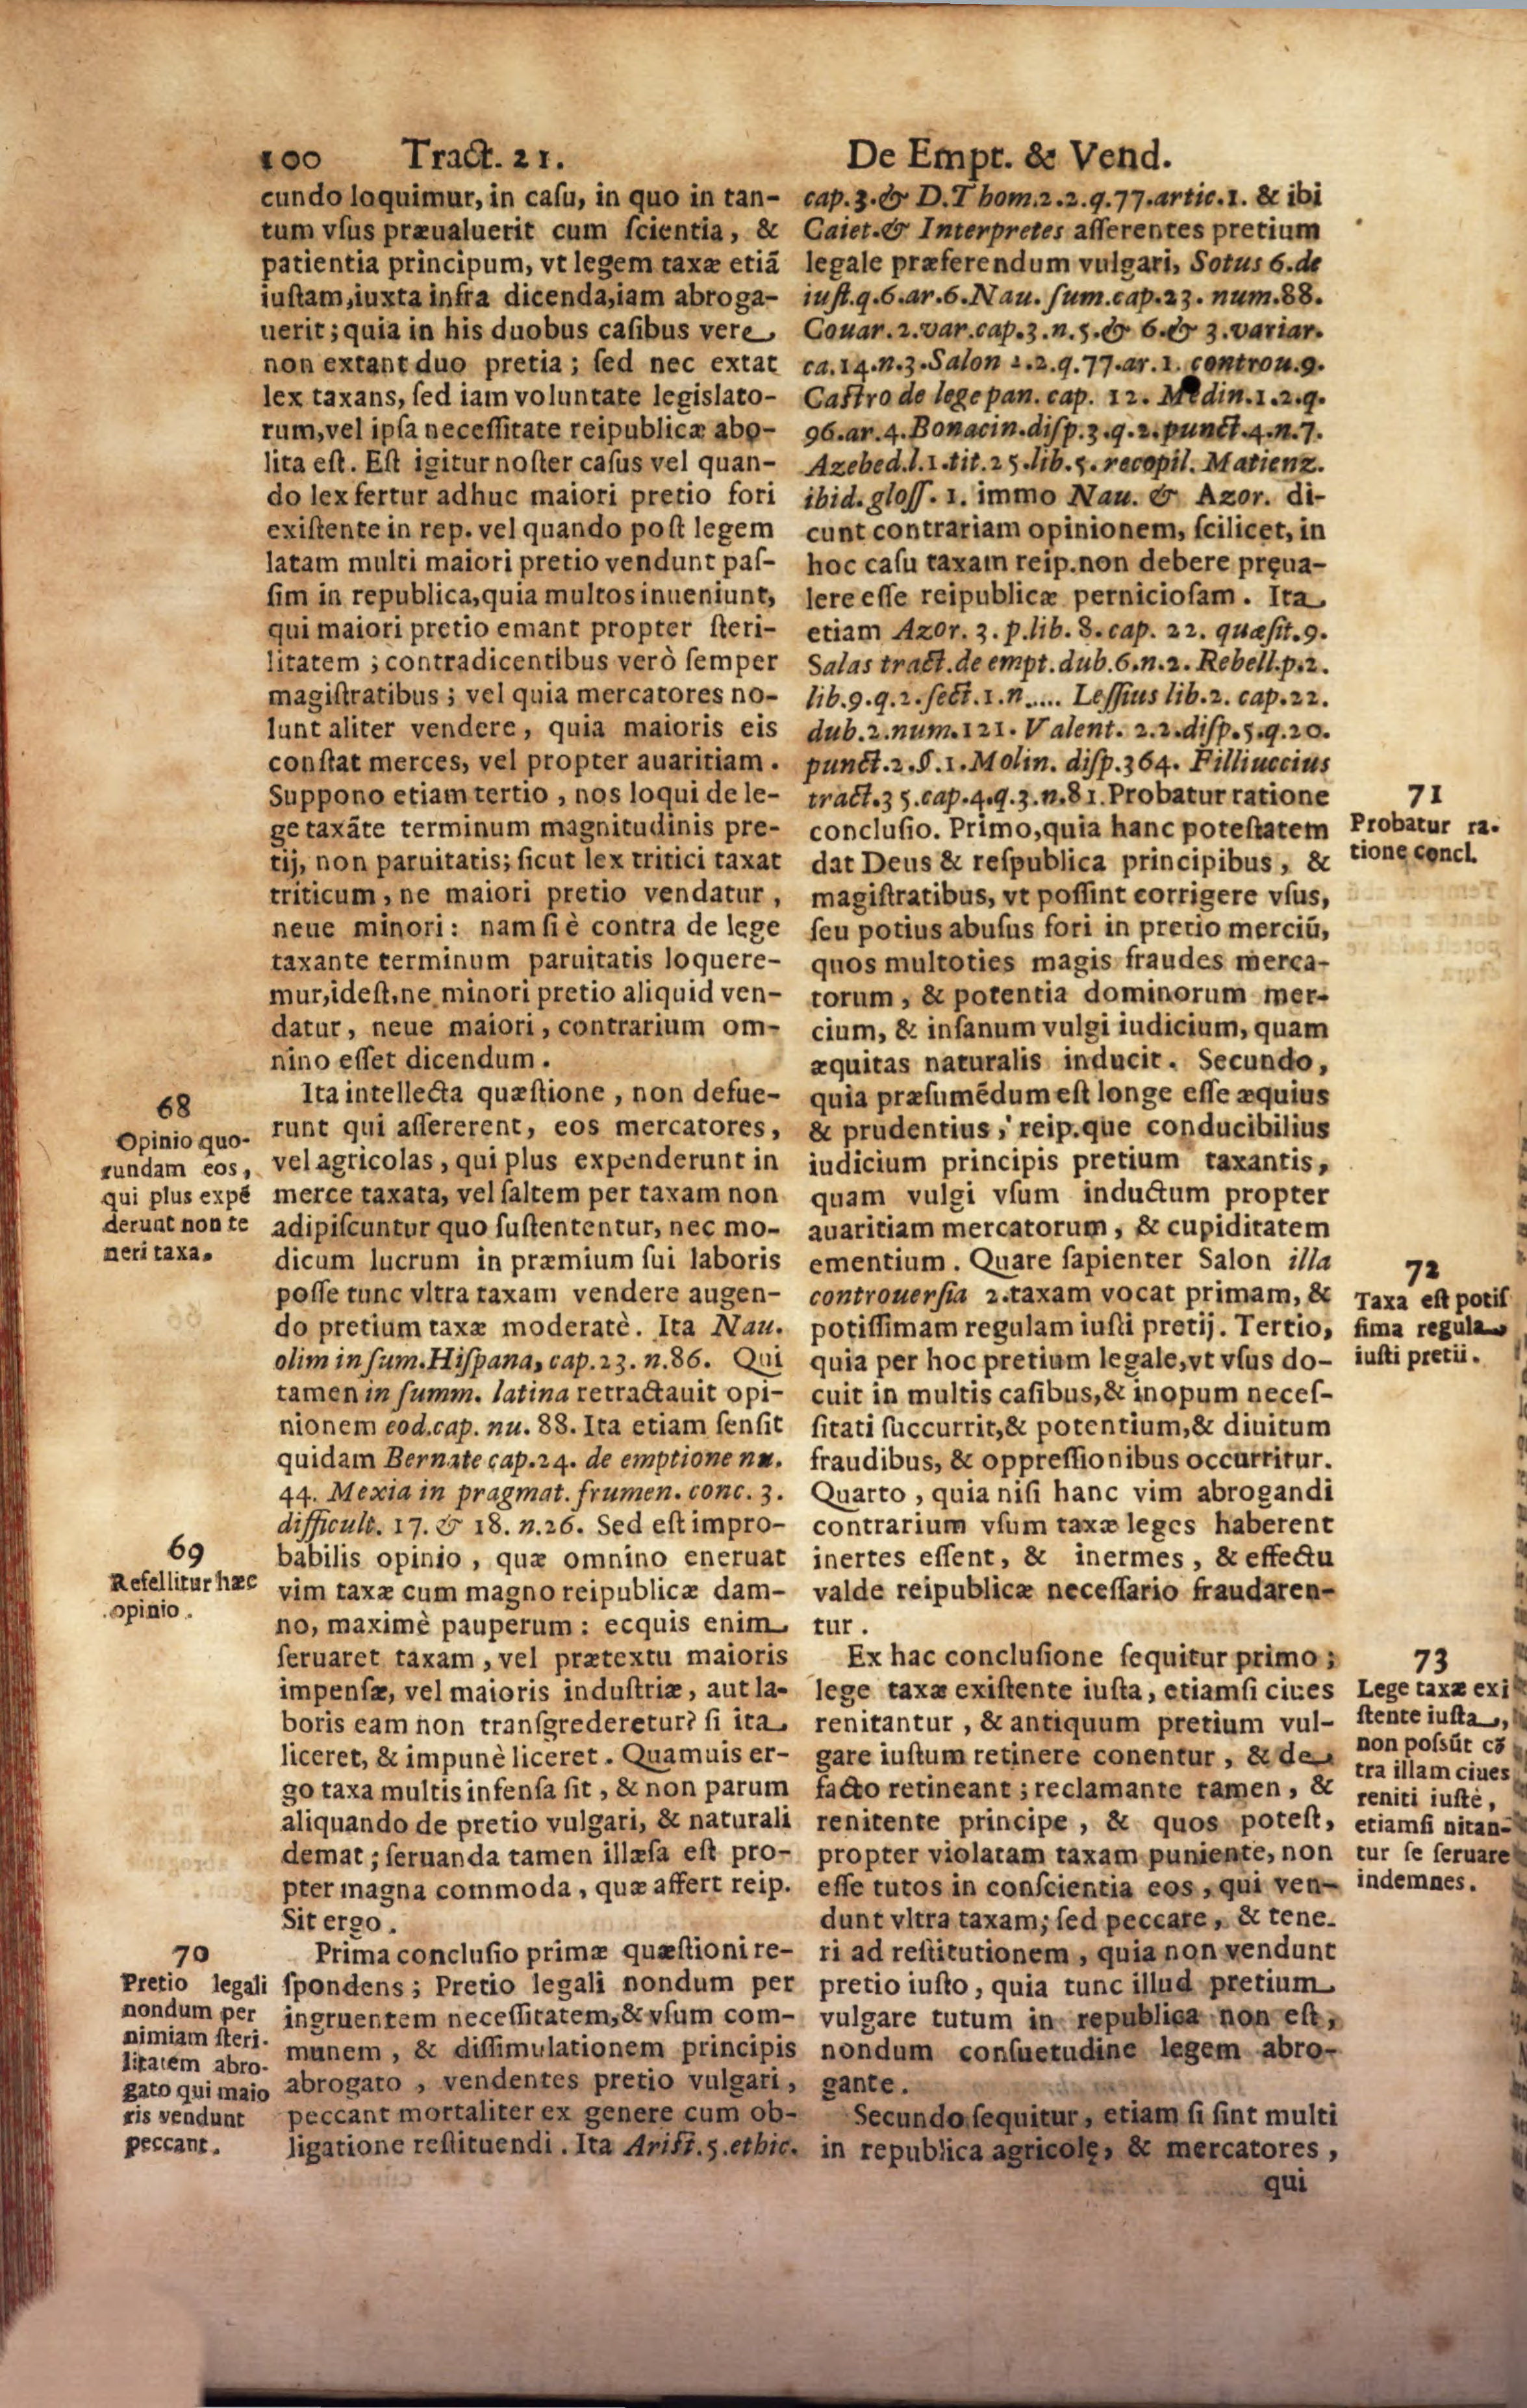 100 Tract. 21. De Empt. & Vend.
cundo loquimur, in caſu, in quo in tan-
tum vſus præualuerit cum ſcientia, &
patientia principum, vt legem taxæ etiã
iuſtam, iuxta infra dicenda, iam abroga-
uerit; quia in his duobus caſibus vere
non extant duo pretia; ſed nec extat
lex taxans, ſed iam voluntate legislato-
rum, vel ipſa neceſſitate reipublicæ abo-
lita eſt. Eſt igitur noſter caſus vel quan-
do lex fertur adhuc maiori pretio fori
exiſtente in rep. vel quando poſt legem
latam multi maiori pretio vendunt paſ-
ſim in republica, quia multos inueniunt,
qui maiori pretio emant propter ſteri-
litatem; contradicentibus verò ſemper
magiſtratibus; vel quia mercatores no-
lunt aliter vendere, quia maioris eis
conſtat merces, vel propter auaritiam.
Suppono etiam tertio, nos loqui de le-
ge taxãte terminum magnitudinis pre-
tij, non paruitatis; ſicut lex tritici taxat
triticum, ne maiori pretio vendatur,
neue minori: nam ſi è contra de lege
taxante terminum paruitatis loquere-
mur, ideſt, ne minori pretio aliquid ven-
datur, neue maiori, contrarium om-
nino eſſet dicendum.
68
Opinio quo-
rundam eos,
qui plus expẽ
derunt non te
neri taxa.
Ita intellecta quæſtione, non defue-
runt qui aſſererent, eos mercatores,
vel agricolas, qui plus expenderunt in
merce taxata, vel ſaltem per taxam non
adipiſcuntur quo ſuſtententur, nec mo-
dicum lucrum in præmium ſui laboris
poſſe tunc vltra taxam vendere augen-
do pretium taxæ moderatè. Ita Nau.
olim in ſum. Hiſpana, cap. 23. n. 86. Qui
tamen in ſumm. latina retractauit opi-
nionem eod. cap. nu. 88. Ita etiam ſenſit
quidam Bernate cap. 24. de emptione nu.
44. Mexia in pragmat. frumen. conc. 3.
difficult. 17. & 18. n. 26. Sed eſt impro-
69
Refellitur hæc
opinio.
babilis opinio, quæ omnino eneruat
vim taxæ cum magno reipublicæ dam-
no, maximè pauperum: ecquis enim
ſeruaret taxam, vel prætextu maioris
impenſæ, vel maioris induſtriæ, aut la-
boris eam non tranſgrederetur? ſi ita
liceret, & impunè liceret. Quamuis er-
go taxa multis infenſa ſit, & non parum
aliquando de pretio vulgari, & naturali
demat; ſeruanda tamen illæſa eſt pro-
pter magna commoda, quæ affert reip.
Sit ergo.
70
Pretio legali
nondum per
nimiam ſteri-
litatem abro-
gato qui maio
ris vendunt
peccant.
Prima concluſio primæ quæſtioni re-
ſpondens; Pretio legali nondum per
ingruentem neceſſitatem, & vſum com-
munem, & diſſimulationem principis
abrogato, vendentes pretio vulgari,
peccant mortaliter ex genere cum ob-
ligatione reſtituendi. Ita Ariſt. 5. ethic.
cap. 3. & D. Thom. 2. 2. q. 77. artic. 1. & ibi
Caiet. & Interpretes aſſerentes pretium
legale præferendum vulgari, Sotus 6. de
iuſt. q. 6. ar. 6. Nau. ſum. cap. 23. num. 88.
Couar. 2. var. cap. 3. n. 5. & 6. & 3. variar.
ca. 14. n. 3. Salon 2. 2. q. 77. ar. 1. controu. 9.
Caſtro de lege pan. cap. 12. Medin. 1. 2. q.
96. ar. 4. Bonacin. diſp. 3. q. 2. punct. 4. n. 7.
Azebed. l. 1. tit. 25. lib. 5. recopil. Matienz.
ibid. gloſſ. 1. immo Nau. & Azor. di-
cunt contrariam opinionem, ſcilicet, in
hoc caſu taxam reip. non debere pręua-
lere eſſe reipublicæ pernicioſam. Ita
etiam Azor. 3. p. lib. 8. cap. 22. quæſit. 9.
Salas tract. de empt. dub. 6. n. 2. Rebell. p. 2.
lib. 9. q. 2. ſect. 1. n..... Leſſius lib. 2. cap. 22.
dub. 2. num. 121. Valent. 2. 2. diſp. 5. q. 20.
punct. 2. §. 1. Molin. diſp. 364. Filliuccius
tract. 35. cap. 4. q. 3. n. 81. Probatur ratione
71
Probatur ra-
tione concl.
concluſio. Primo, quia hanc poteſtatem
dat Deus & reſpublica principibus, &
magiſtratibus, vt poſſint corrigere vſus,
ſeu potius abuſus fori in pretio merciũ,
quos multoties magis fraudes merca-
torum, & potentia dominorum mer-
cium, & inſanum vulgi iudicium, quam
æquitas naturalis inducit. Secundo,
quia præſumẽdum eſt longe eſſe æquius
& prudentius, reip. que conducibilius
iudicium principis pretium taxantis,
quam vulgi vſum inductum propter
auaritiam mercatorum, & cupiditatem
ementium. Quare ſapienter Salon illa
72
Taxa eſt potiſ
ſima regula
iuſti pretii.
controuerſia 2. taxam vocat primam, &
potiſſimam regulam iuſti pretij. Tertio,
quia per hoc pretium legale, vt vſus do-
cuit in multis caſibus, & inopum neceſ-
ſitati ſuccurrit, & potentium, & diuitum
fraudibus, & oppreſſionibus occurritur.
Quarto, quia niſi hanc vim abrogandi
contrarium vſum taxæ leges haberent
inertes eſſent, & inermes, & effectu
valde reipublicæ neceſſario fraudaren-
tur.
73
Lege taxæ exi
ſtente iuſta,
non poſsũt cõ
tra illam ciues
reniti iuſtè,
etiamſi nitan-
tur ſe ſeruare
indemnes.
Ex hac concluſione ſequitur primo;
lege taxæ exiſtente iuſta, etiamſi ciues
renitantur, & antiquum pretium vul-
gare iuſtum retinere conentur, & de
facto retineant; reclamante tamen, &
renitente principe, & quos poteſt,
propter violatam taxam puniente, non
eſſe tutos in conſcientia eos, qui ven-
dunt vltra taxam; ſed peccare, & tene-
ri ad reſtitutionem, quia non vendunt
pretio iuſto, quia tunc illud pretium
vulgare tutum in republica non eſt,
nondum conſuetudine legem abro-
gante.
Secundo ſequitur, etiam ſi ſint multi
in republica agricolę, & mercatores,
qui